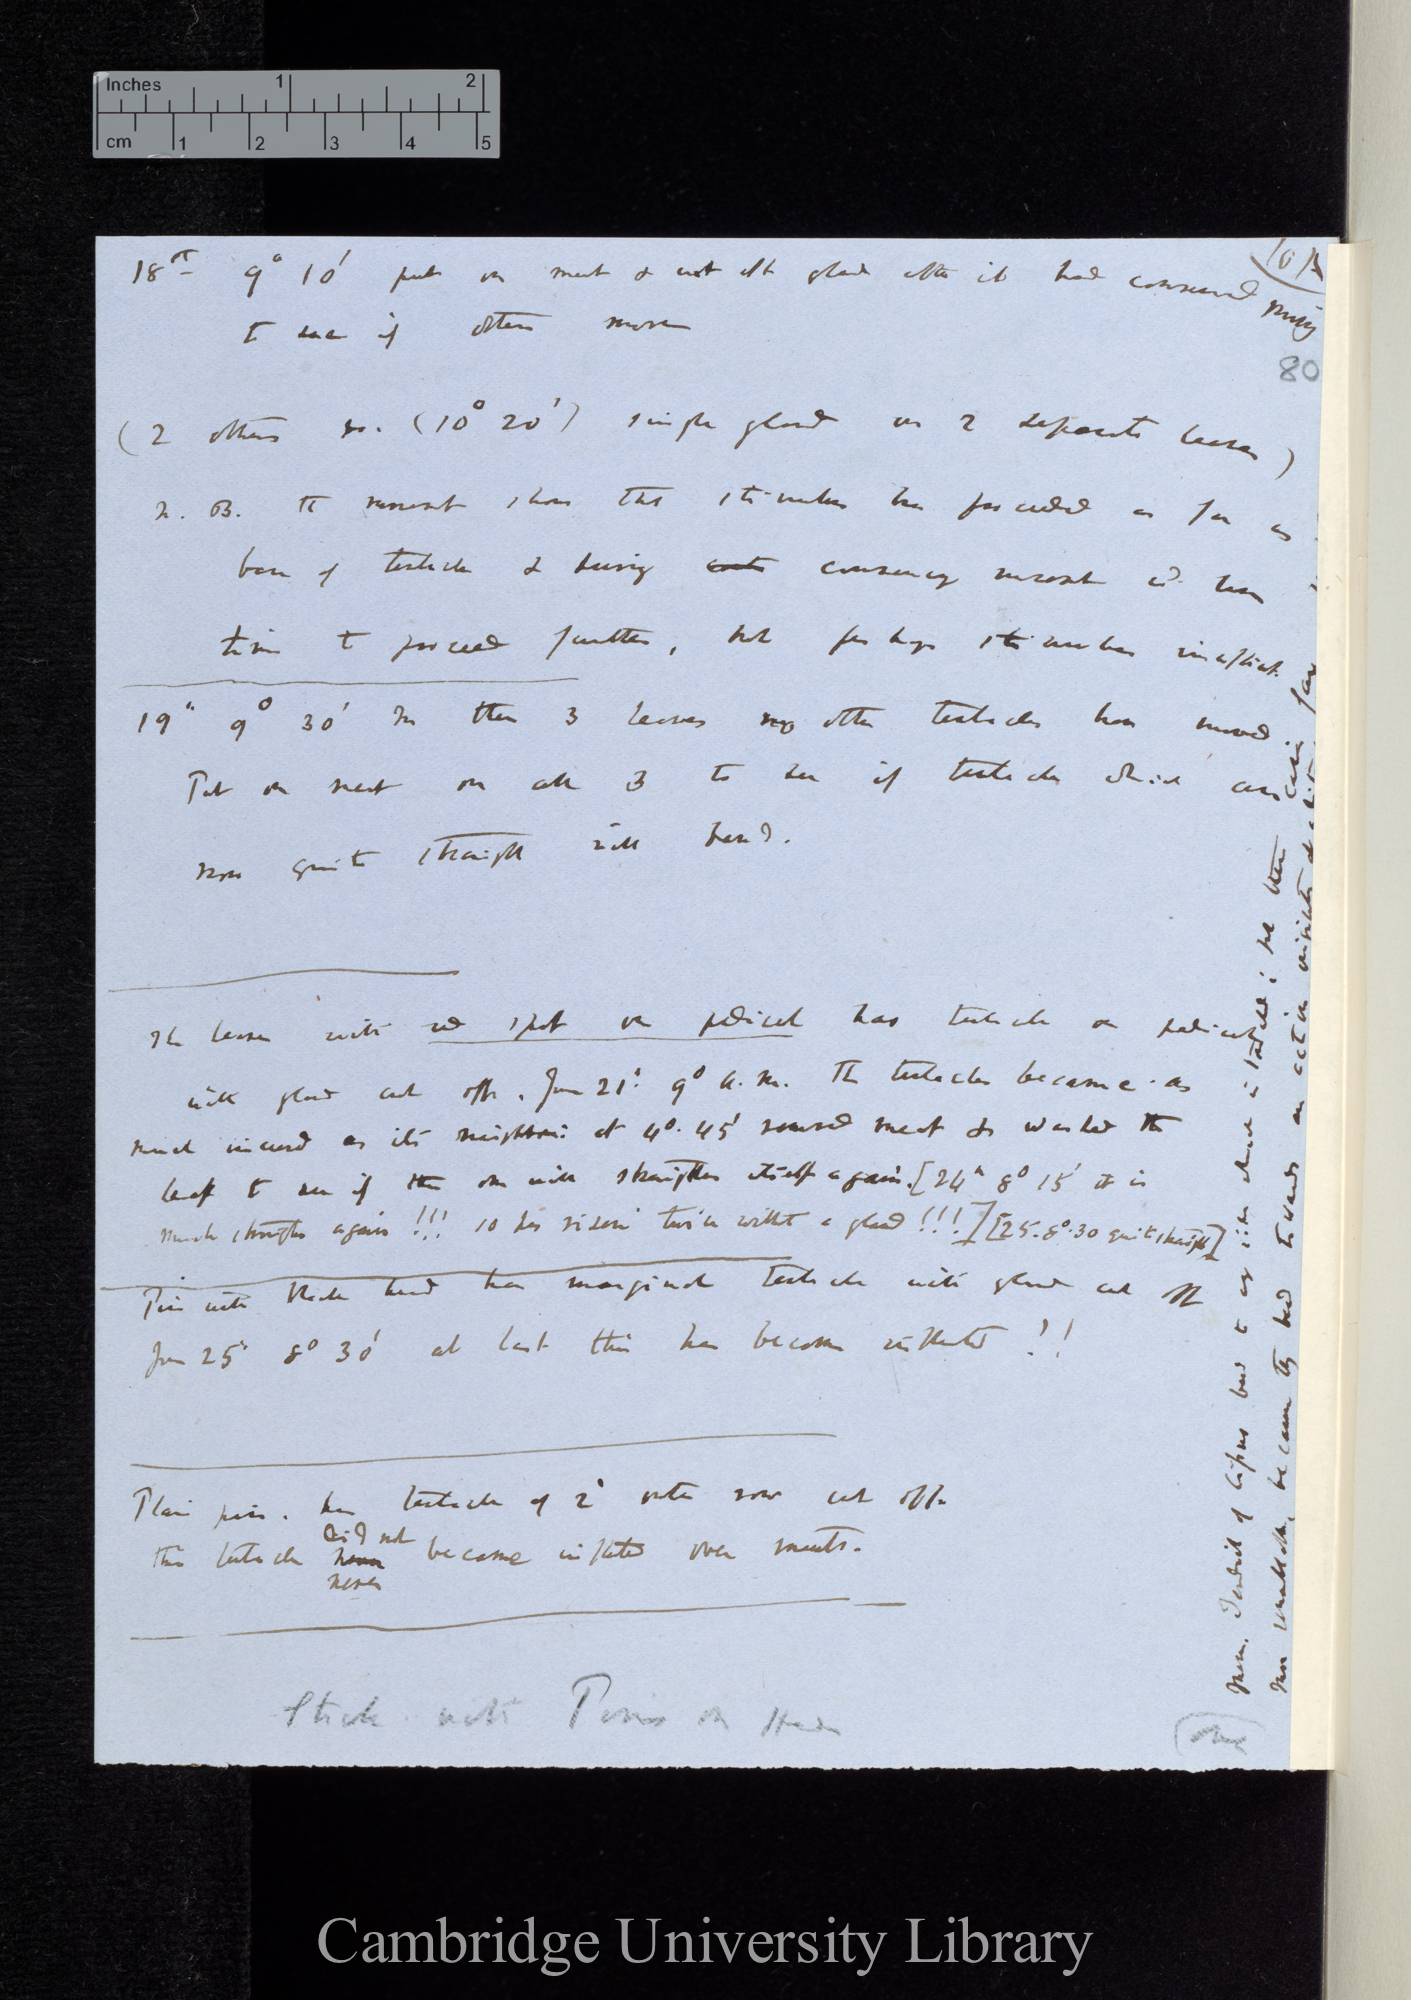 Inches 1 2
cm 1 2 3 4 5
(10 B
18th 9° 10' put on meat & cut off gland after it had commenced moving
to see if others move
80
(2 others so. (10° 20') single gland on 2 separate leaves)
N.B. The movement shows that stimulus has proceeded as far as
base of tentacle & during commencing movement it has
time to proceed further, but perhaps stimulus insufficient
19th 9° 30' In these 3 leaves no other tentacles have moved.
Put on meat on all 3 to see if tentacles which are
now quite straight will bend.
The leaves with red spot on pedicel has tentacle on pedicel
with gland cut off. June 21st 9° a.m. The tentacles became as
much incurved as its neighbours: at 4°. 45' removed meat & washed the
leaf to see if the one will straighten itself again. [24th 8° 15' it is
much straighter again!!! so has risen twice without a gland!!!] [25. 8°. 30 quite straight]
Pin with black head has marginal tentacle with gland cut off
June 25th 8° 30' at last this has become inflected!!
Plain pin. has tentacle of 2d outer row cut off.
did not
This tentacle never become inflected over meat.
never
Stick with Pins on Heads
Mem. Tendril of bend to any side which is touched; but these
Cambridge University Library